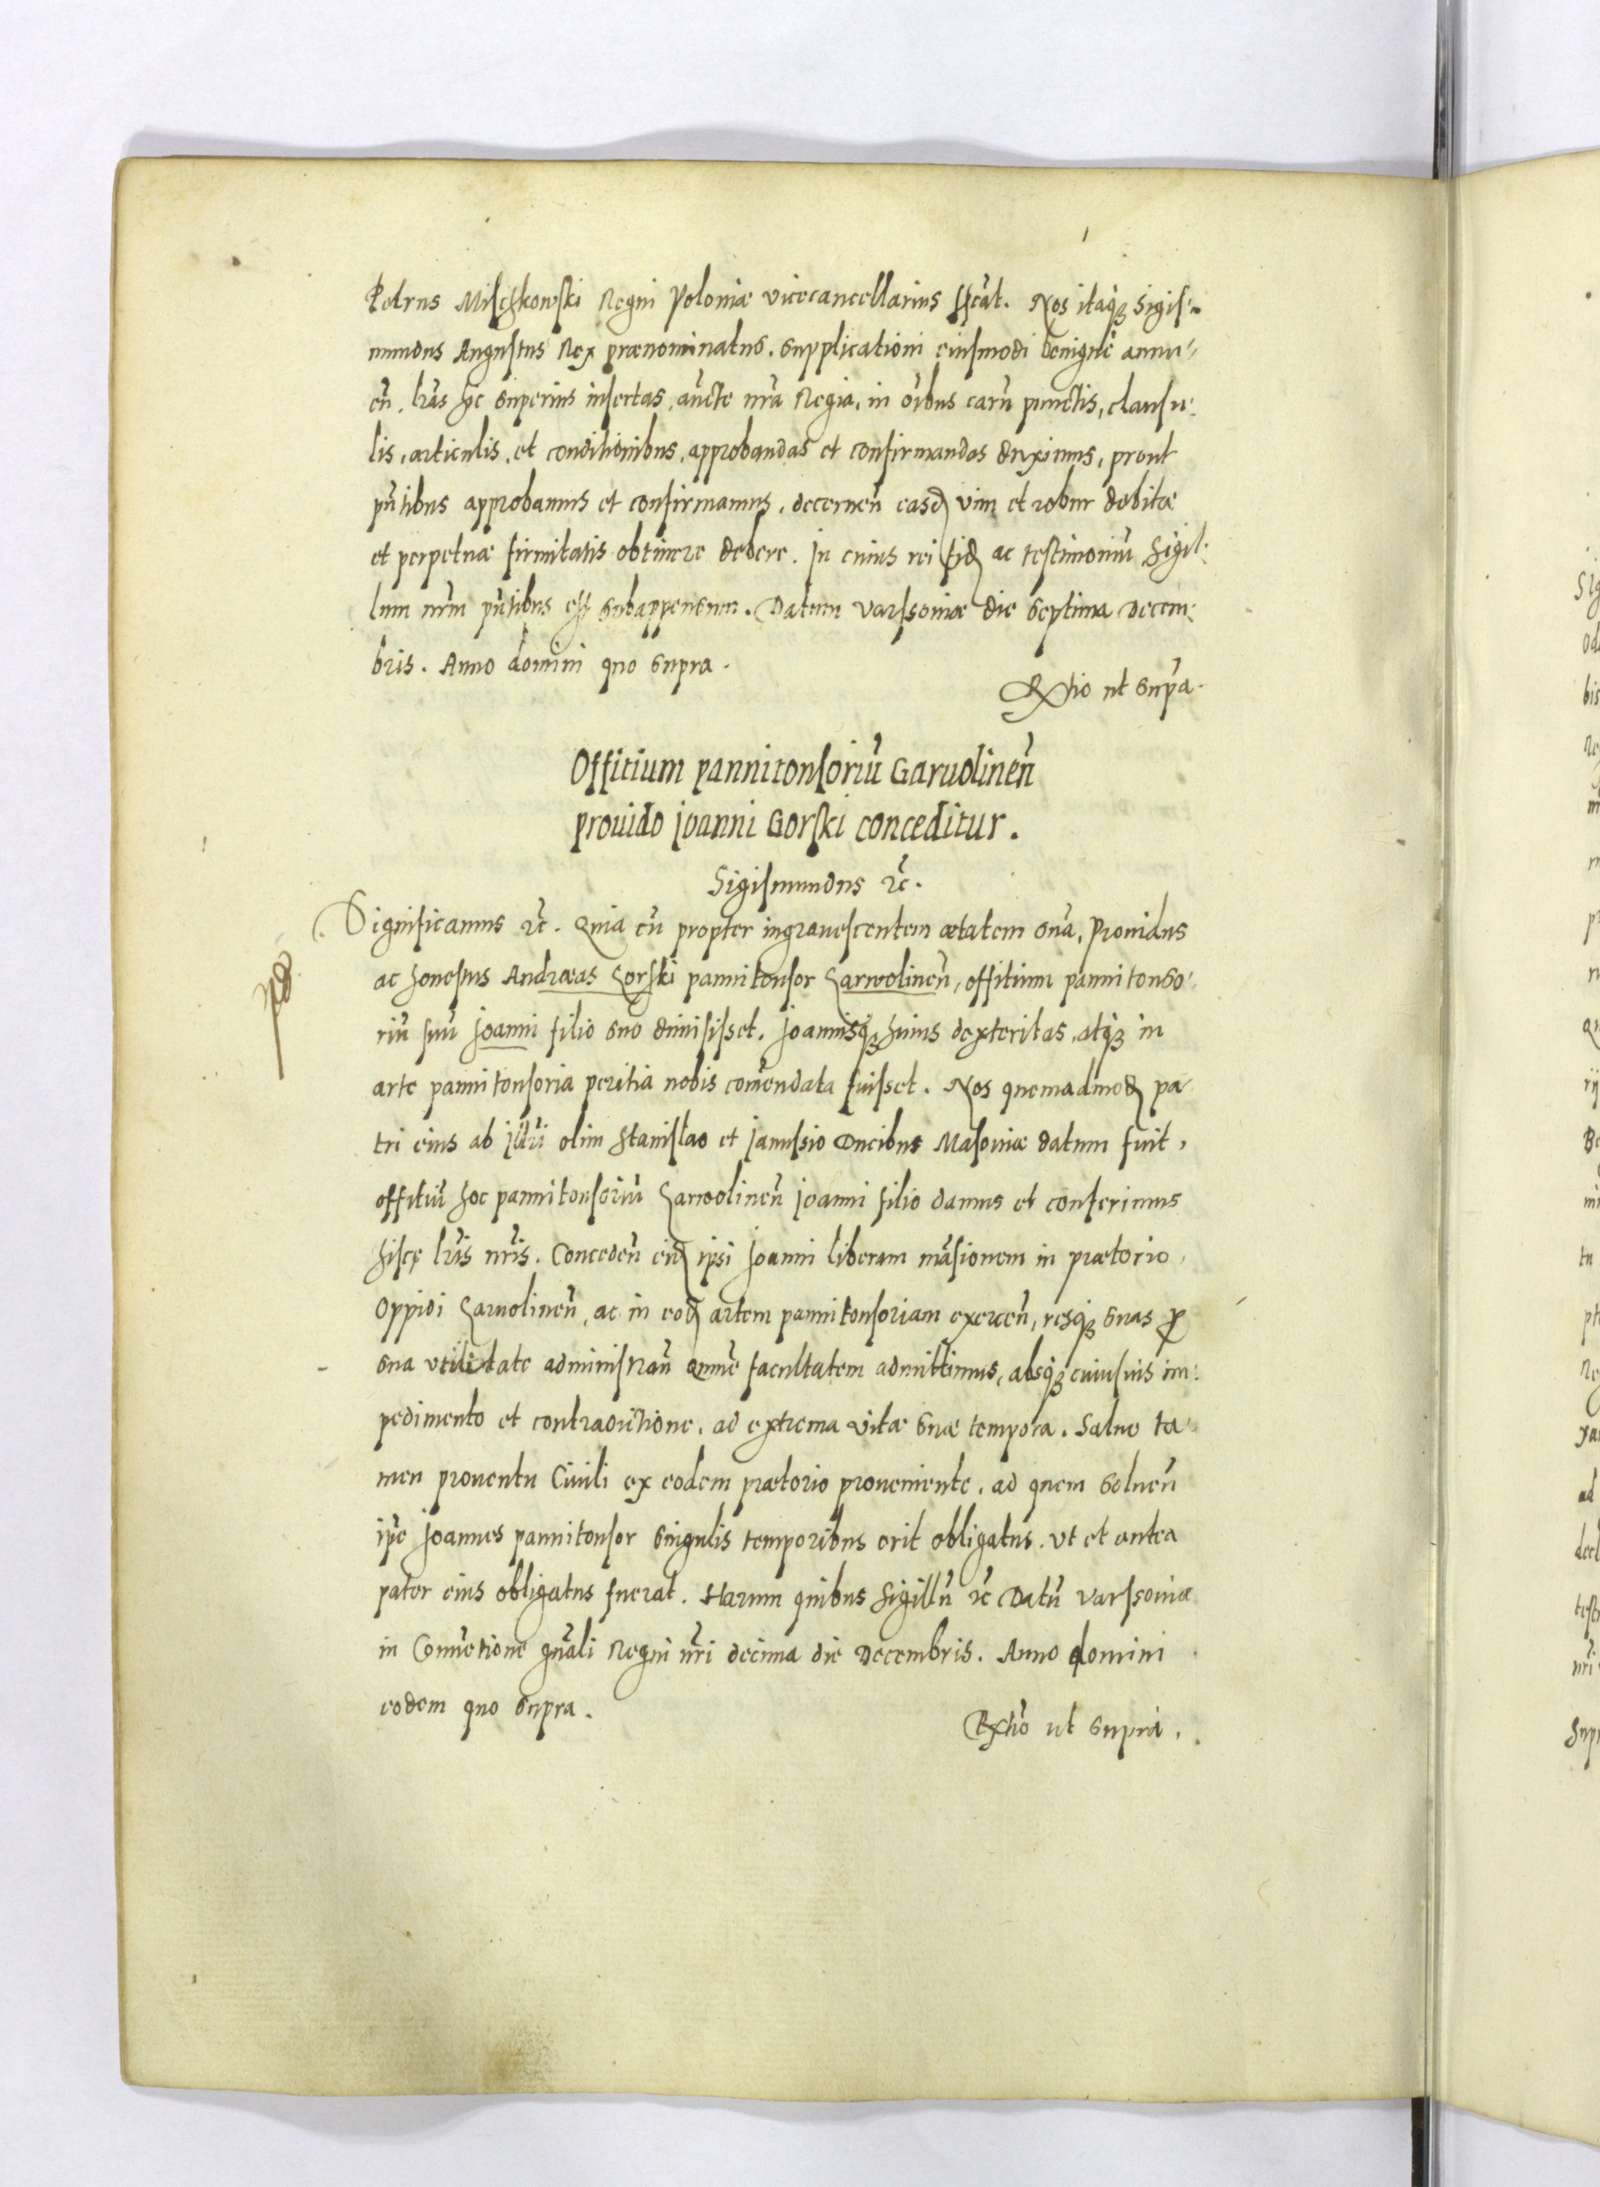 Petrus Mischkowski Regni Poloniæ vicecancellarius sścāt. Nos itaqꝫ Sigis-
mundus Augustus Rex prænominatus. supplicationi eiusmodi benignè annu-
eñ. lr̃as hĩc superius insertas, auc̃te nr̃a Regia, in oĩbus earũ punctis, clausu-
lis, articulis, et conditionibus, approbandas et confirmandas duximus, prout
pñtibus approbamus et confirmamus, decerneñ easdꝫ vim et robur debitæ
et perpetuæ firmitatis obtinere debere. In cuius rei fidꝫ ac testimoniũ Sigil-
lum nr̃m pñtibus est subappensum. Datum Varssoviæ die septima Decem-
bris. Anno domini quo supra.
Rxtio ut supã.
Offitium pannitonsoriũ Garuolineñ
prouido Joanni Gorski conceditur.
Sigismundus ꝛc̃.
Significamus ꝛc̃. Quia cũ propter ingrauescentem ætatem suã, Prouidus
ac honestus Andræas Gorski pannitonsor Garwolineñ, offitium pannitonso-
riũ suũ Joanni filio suo dimisisset, Joannisqꝫ huius dexteritas, atqꝫ in
arte pannitonsoria peritia nobis com̃endata fuisset. Nos quemadmodꝫ pa-
tri eius ab Illr̃i olim Stanislao et Janussio Ducibus Masoviæ datum fuit,
offitiũ hoc pannitonsoriũ Garwolineñ Joanni filio damus et conferimus
hisce lr̃is nr̃is. Concedeñ eidꝫ ipsi Joanni liberam mãsionem in prætorio
Oppidi Garuolineñ, ac in eodꝫ artem pannitonsoriam exerceñ, resqꝫ suas ꝓ
sua vtilitate administrañ om̃e facultatem admittimus, absqꝫ cuiusuis im-
pedimento et contradictione, ad extrema vitæ suæ tempora. Saluo ta-
men prouentu Ciuili ex eodem prætorio proueniente, ad quem solueñ
ip̃e Joannes pannitonsor singulis temporibus erit obligatus. vt et antea
pater eius obligatus fuerat. Harum quibus Sigillũ ꝛc̃ Datũ Varssoviæ
in Conuẽtione gñali Regni nr̃i decima die Decembris. Anno domini
eodem quo supra.
Rxtiõ ut supra.